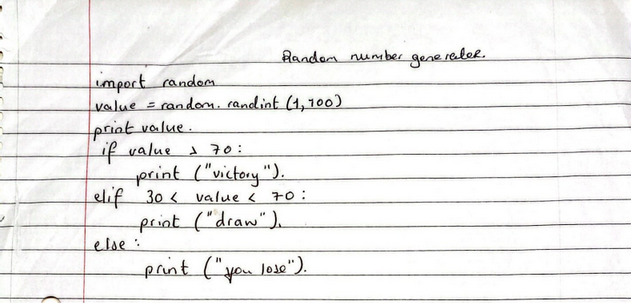 Random number generator.
import random
value = random.randint (1, 100)
print value.
if value > 70:
print ("victory").
elif 30 < value < 70:
print ("draw").
else:
print ("you lose").